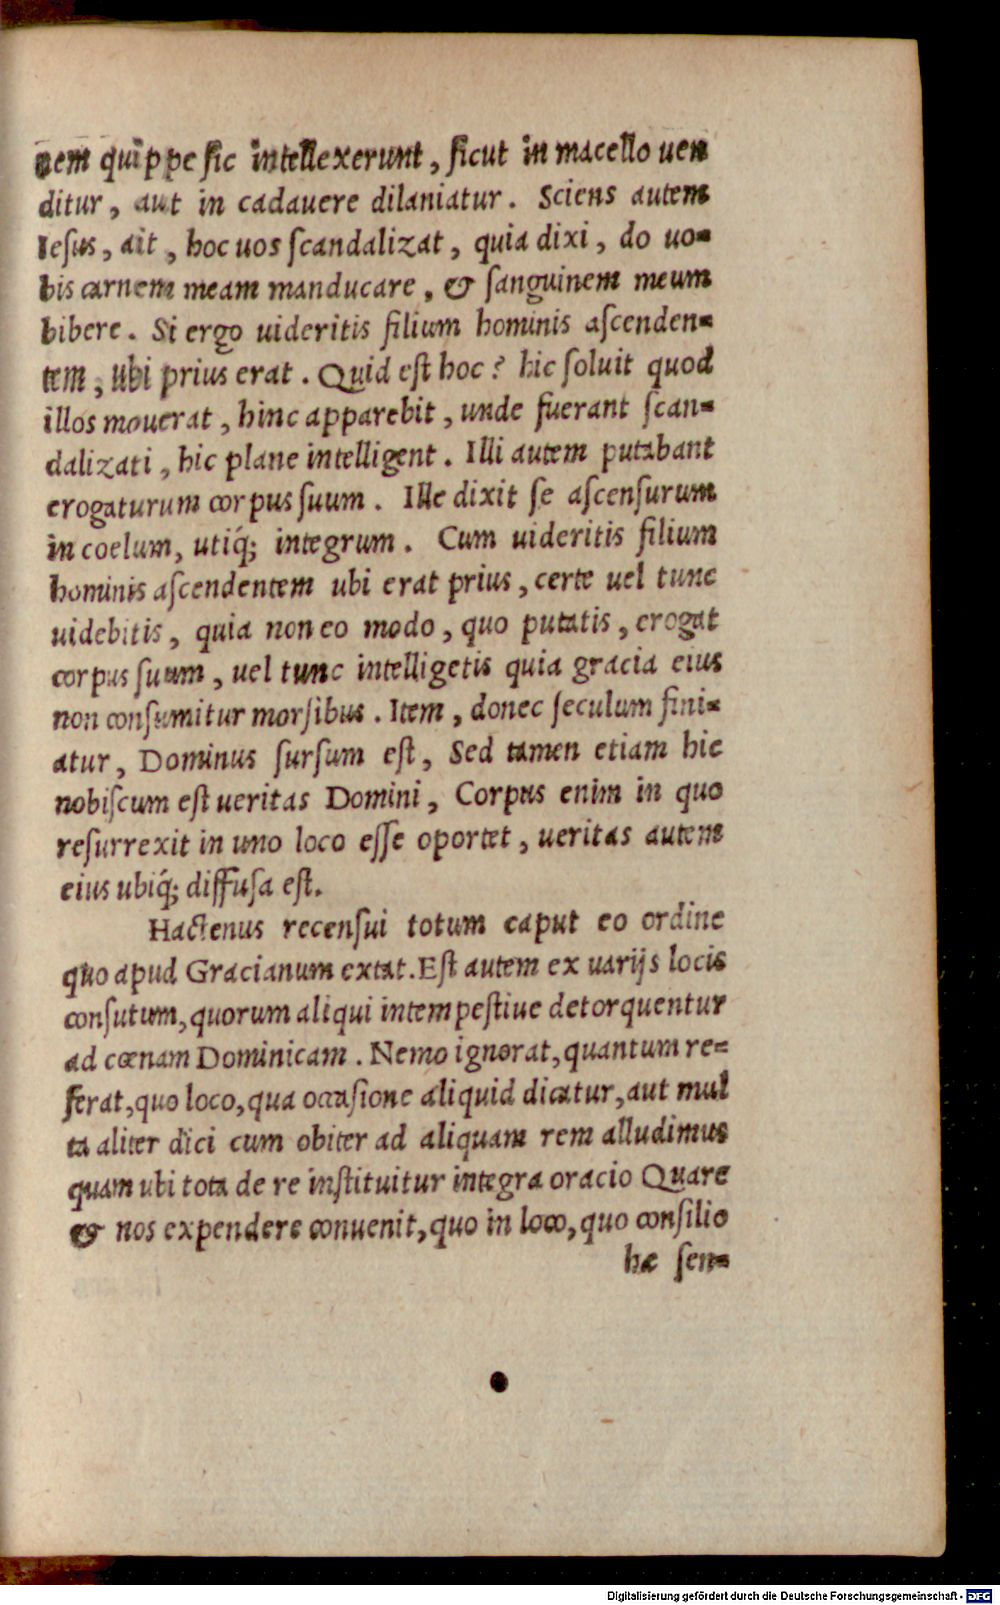 nem quippe sic intellexerunt, sicut in macello uen
ditur, aut in cadauere dilaniatur. Sciens autem
Iesus, ait, hoc uos scandalizat, quia dixi, do uo-
bis carnem meam manducare, & sanguinem meum
bibere. Si ergo uideritis filium hominis ascenden-
tem, ubi prius erat. Quid est hoc? hic soluit quod
illos mouerat, hinc apparebit, unde fuerant scan-
dalizati, hic plane intelligent. Illi autem putabant
erogaturum corpus suum. Ille dixit se ascensurum
in coelum, utiq́; integrum. Cum uideritis filium
hominis ascendentem ubi erat prius, certe uel tunc
uidebitis, quia non eo modo, quo putatis, erogat
corpus suum, uel tunc intelligetis quia gracia eius
non consumitur morsibus. Item, donec seculum fini-
atur, Dominus sursum est, Sed tamen etiam hic
nobiscum est ueritas Domini, Corpus enim in quo
resurrexit in uno loco esse oportet, ueritas autem
eius ubiq́; diffusa est.
Hactenus recensui totum caput eo ordine
quo apud Gracianum extat. Est autem ex uarijs locis
consutum, quorum aliqui intempestiue detorquentur
ad cœnam Dominicam. Nemo ignorat, quantum re-
ferat, quo loco, qua occasione aliquid dicatur, aut mul
ta aliter dici cum obiter ad aliquam rem alludimus
quam ubi tota de re instituitur integra oracio Quare
& nos expendere conuenit, quo in loco, quo consilio
hæ sen-
Digitalisierung gefördert durch die Deutsche Forschungsgemeinschaft - DFG